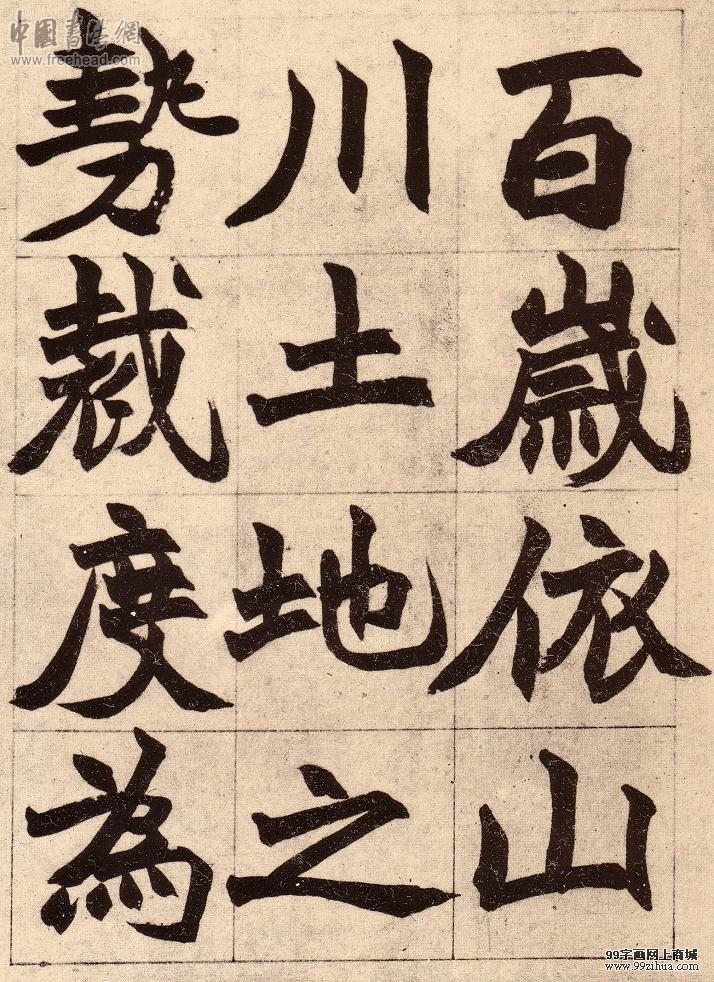 百歲依山
川土地之
勢裁度為
中國書法網
www.freehead.com
99字画网上商城
www.99zihua.com